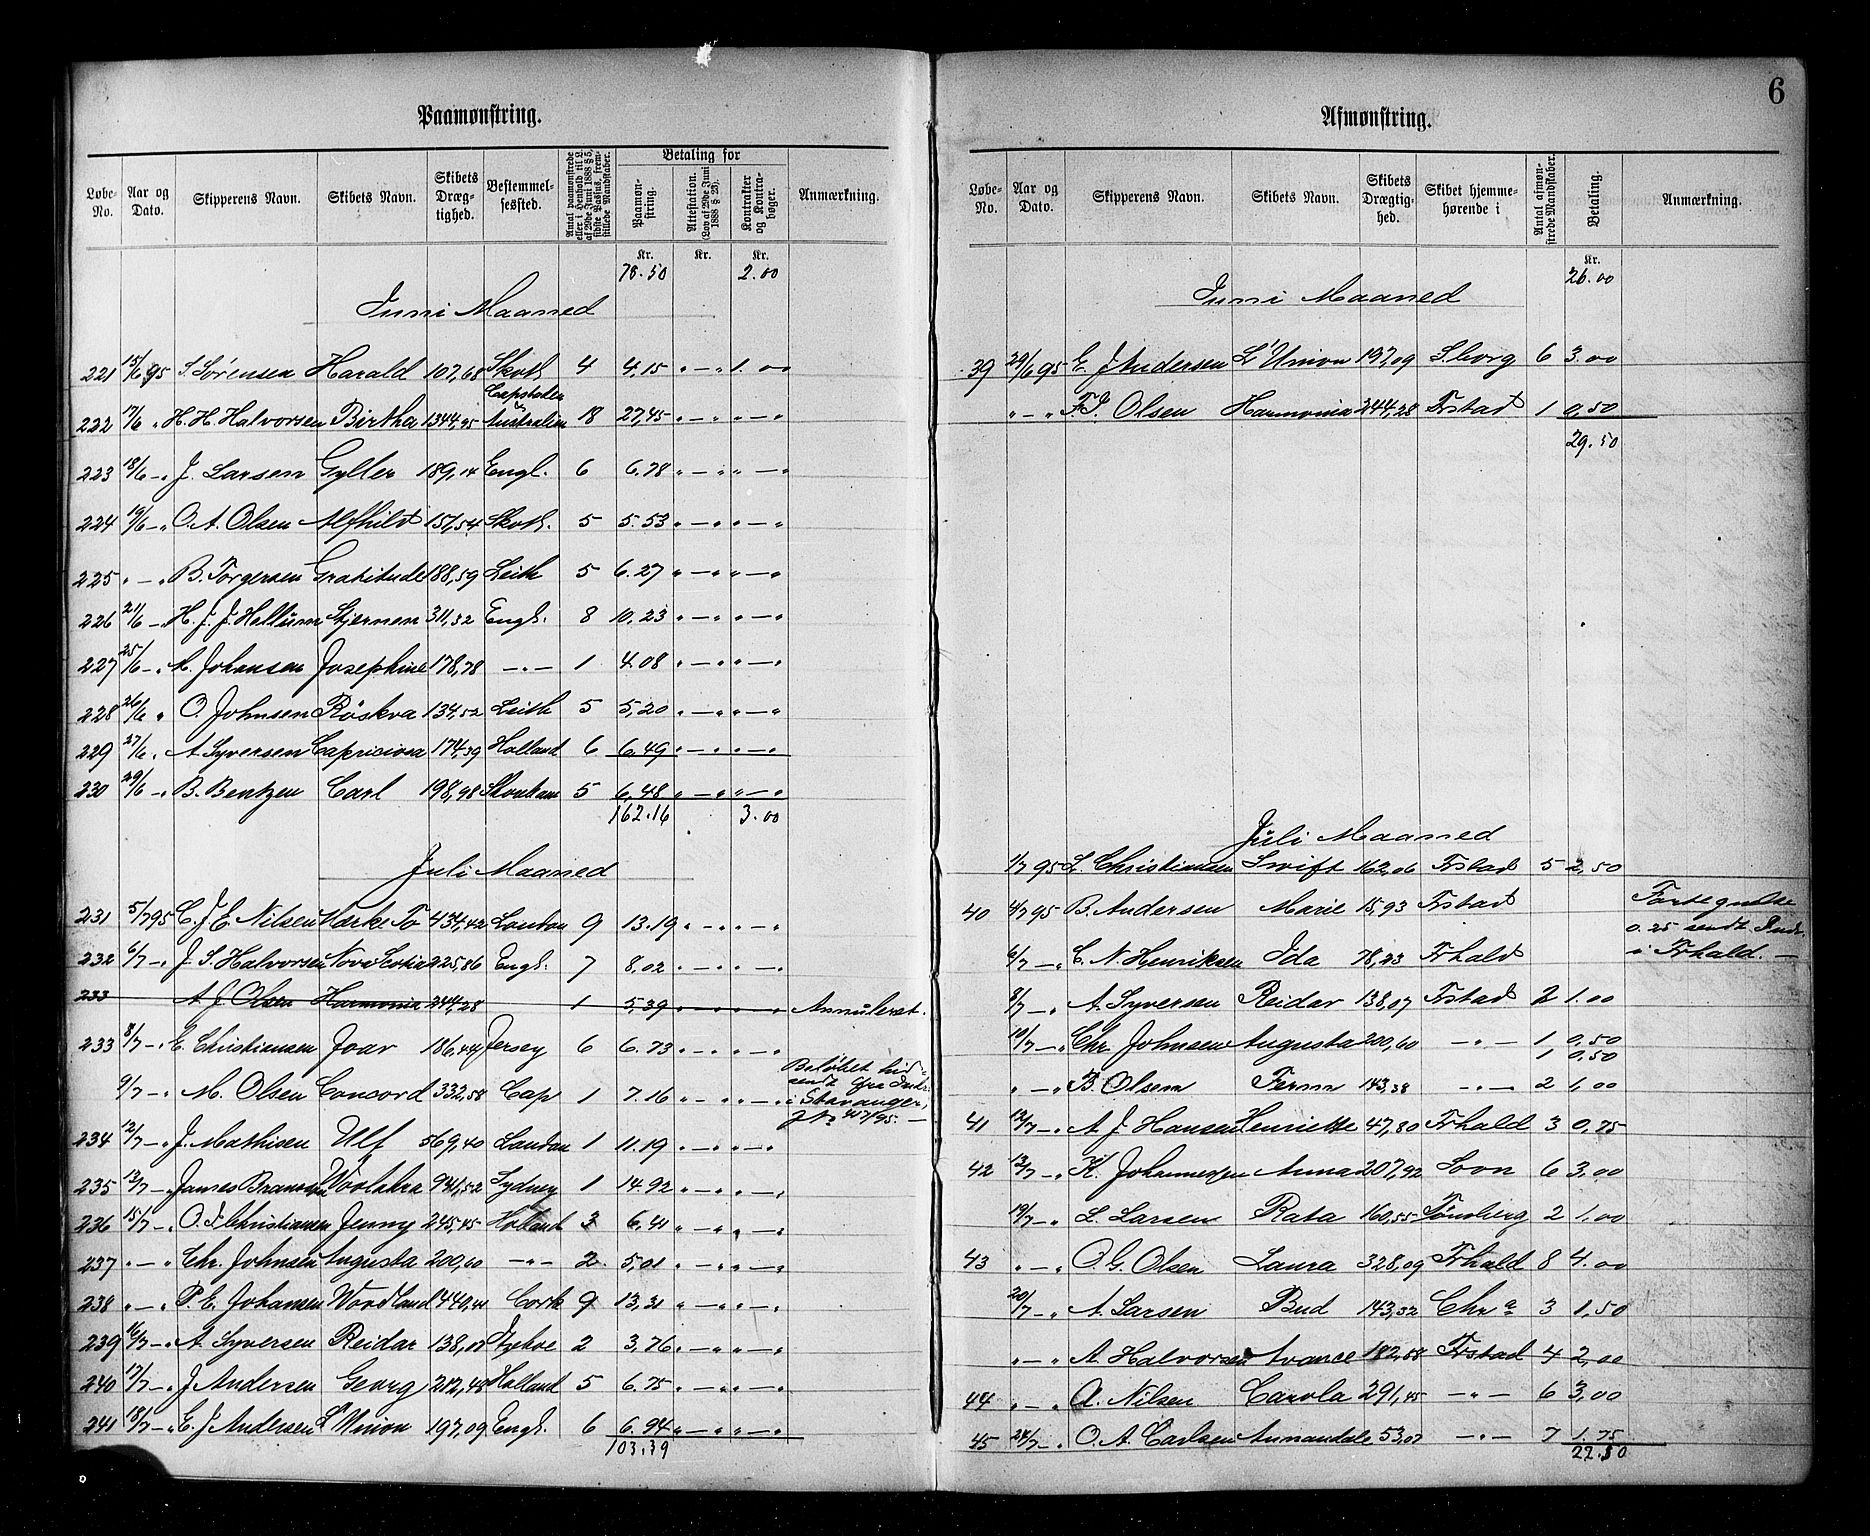 Paamønstring.
Løbe-No. Aar og Dato. Skipperens Navn. Skibets Navn. Skibets Dræg-tighed. Bestemmel-sessted. Antal paamønstrede eller i Henhold til L. af 29de Juni 1888 § 5, sidste Passus, frem-stillede Mandskaber. Betaling for Paamøn-string. Attestation. (Lov af 29de Juni 1888 § 23). Kontrakter og Kontra-bøger. Anmærkning.
Kr. Kr. Kr.
78.50 2.00
Juni Maaned
221 15/6 95 S. Sørensen Harald 107,68 Skotl. 4 4,15 " — " 1.00
222 17/6 " H. H. Halvorsen Birtha 1344,95 Capstaden & Australien 18 27,45 " — " " — "
223 18/6 — " J. Larsen Gyller 189,14 Engl. 6 6.78 " — " " — "
224 19/6 — " O. A. Olsen Alfhild 157,54 Skotl. 5 5.53 " — " " — "
225 " — " B. Torgersen Gratitude 188,59 Leith 5 6.27 " — " " — "
226 21/6 — " H. J. J. Hellum Stjernen 311,32 Engl. 8 10.23 " — " " — "
227 25/6 — " A. Johansen Josephine 178,78 — " — 1 4.08 " — " " — "
228 26/6 " O. Johnsen Röskva 134,52 Leith 5 5,20 " — " " — "
229 27/6 " A. Syversen Capriciosa 174,39 Holland 6 6,49 " — " " — "
230 29/6 — " B. Bentzen Carl 198,98 5 6,48 " — " " — "
162.16 3.00
Juli Maaned
231 5/7 95 C. J. E. Nilsen Marke To 434,42 London 9 13.19 " — " " — "
232 6/7 — " J. S. Halvorsen Nova Scotia 225,86 Engl. 7 8,02 " — " " — "
233 A. J. Olsen Harmonia 244,28 1 5,39 " — " " — " Annuleret.
233 8/7 — " E. Christiansen Joar 186,44 Jersey 6 6.73 " — " " — "
9/7 — " M. Olsen Concord 332,58 Cap 1 7.16 " — " " — " Beløbet hid-sendt fra Indr. i Stavanger,
234 12/7 — " J. Mathisen Ulf 569,40 London 1 11.19 " — " " — "
235 13/7 — " James 941,52 Sydney 1 14.92 " — " " — "
236 15/7 — " O. J. Christiansen Jenny 245,45 Holland 3 6,41 " — " " — "
237 " — " Chr. Johnsen Augusta 200,60 — " — 2 5,01 " — " " — "
238 " — " P. E. Johansen Woodland 440,41 Cork 9 13,21 " — " " — "
239 16/7 — " A. Syversen Reidar 138,07 Itzehoe 2 3,76 " — " " — "
240 17/7 — " J. Andersen Georg 212,48 Holland 5 6.75 " — " " — "
241 18/7 — " E. J. Andersen L'Union 197,09 Engl. 6 6.94 " — " " — "
103.39
6
Afmønstring.
Løbe-No. Aar og Dato. Skipperens Navn. Skibets Navn. Skibets Drægtig-hed. Skibet hjemme-hørende i Antal afmøn-strede Mandskaber. Betaling. Anmærkning.
Kr.
26.00
Juni Maaned
39 29/6 95 E. J. Andersen L'Union 197,09 S.borg 6 3.00
" — " F. J. Olsen Harmonia 244,28 Frstad 1 0,50
29.50
Juli Maaned
1/7 95 L. Christiansen Swift 162,06 Frstad 5 2,50
40 4/7 95 B. Andersen Marie 15,93 Frstad Fortegnelse 0.25 sendt Indr. i Frhald. —
6/7 — " C. N. Henriksen Ida 78,23 Frhald
8/7 — " A. Syversen Reidar 138,07 Frstad 2 1.00
10/7 — " Chr. Johnsen Augusta 200,60 — " — 1 0,50
1 0,50
" — " B. Olsen Ferm 143,38 — " — 2 1,00
41 12/7 — " A. J. Hansen Henriette 47,80 Frhald 3 0,75
42 13/7 — " K. Johannesen Anna 207,92 Soon 6 3,00
19/7 — " L. Larsen Rata 160,55 Tönsberg 2 1,00
43 " — " O. G. Olsen Laura 328,09 Frhald 8 4.00
20/7 — " A. Larsen Bud 143,32 Chr.a 3 1,50
" — " A. Halvorsen Avance 182,88 Frstad 4 2,00
44 " — " A. Nilsen Carola 291,45 — " — 6 3,00
45 24/7 — " O. A. Carlsen Annandale 53,07 — " — 7 1.75
22.50